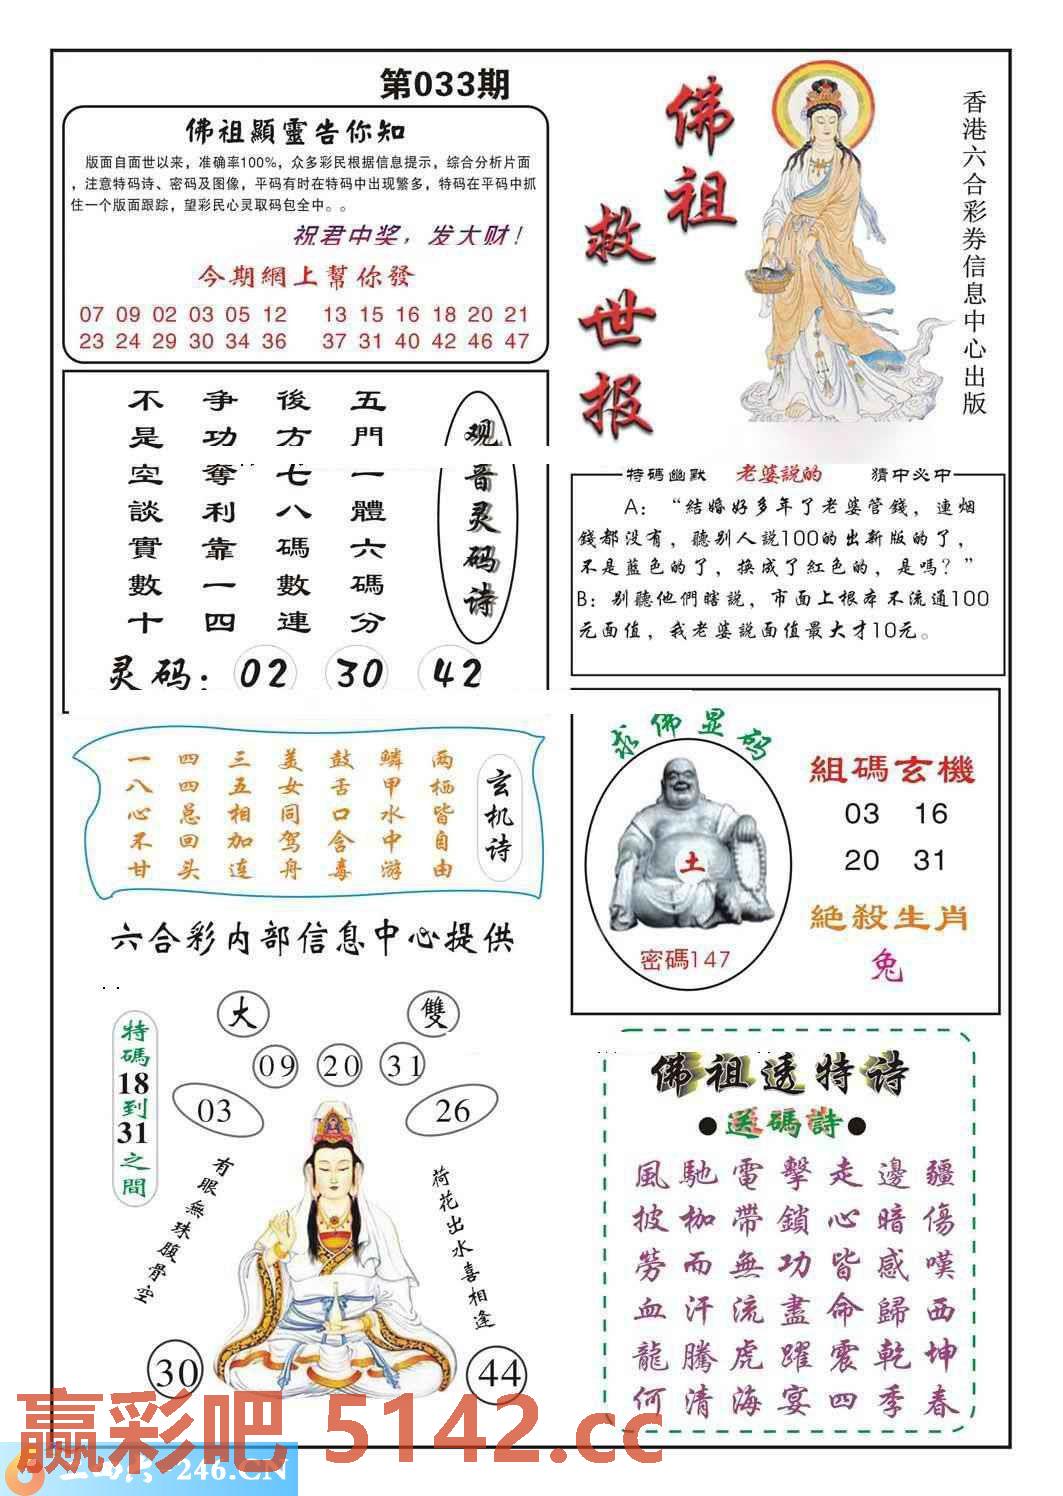 第033期
佛祖顯靈告你知
版面自面世以来，准确率100%，众多彩民根据信息提示，综合分析片面
，注意特码诗、密码及图像，平码有时在特码中出现繁多，特码在平码中抓
住一个版面跟踪，望彩民心灵取码包全中。。
祝君中奖，发大财！
今期網上幫你發
07 09 02 03 05 12 13 15 16 18 20 21
23 24 29 30 34 36 37 31 40 42 46 47
佛祖
救世报
香港六合彩券信息中心出版
观音灵码诗
五門一體六碼分
後方七八碼數連
争功奪利靠一四
不是空談實數十
灵码：02 30 42
特碼幽默 老婆説的 猜中必中
A：“結婚好多年了老婆管錢，連烟
錢都没有，聽别人説100的出新版的了，
不是藍色的了，换成了紅色的，是嗎？”
B：别聽他們瞎説，市面上根本不流通100
元面值，我老婆説面值最大才10元。
玄机诗
两栖皆自由
鳞甲水中游
鼓舌口含毒
美女同驾舟
三五相加连
四四总回头
一八心不甘
求佛显码
土
密碼147
組碼玄機
03 16
20 31
絶殺生肖
兔
六合彩内部信息中心提供
特碼18到31之間
大 雙
09 20 31
03 26
有眼無珠腹骨空
荷花出水喜相逢
30 44
佛祖透特诗
●送碼詩●
風馳電擊走邊疆
披枷帶鎖心暗傷
勞而無功皆感嘆
血汗流盡命歸西
龍騰虎躍震乾坤
何清海宴四季春
赢彩吧 5142.cc
246.CN